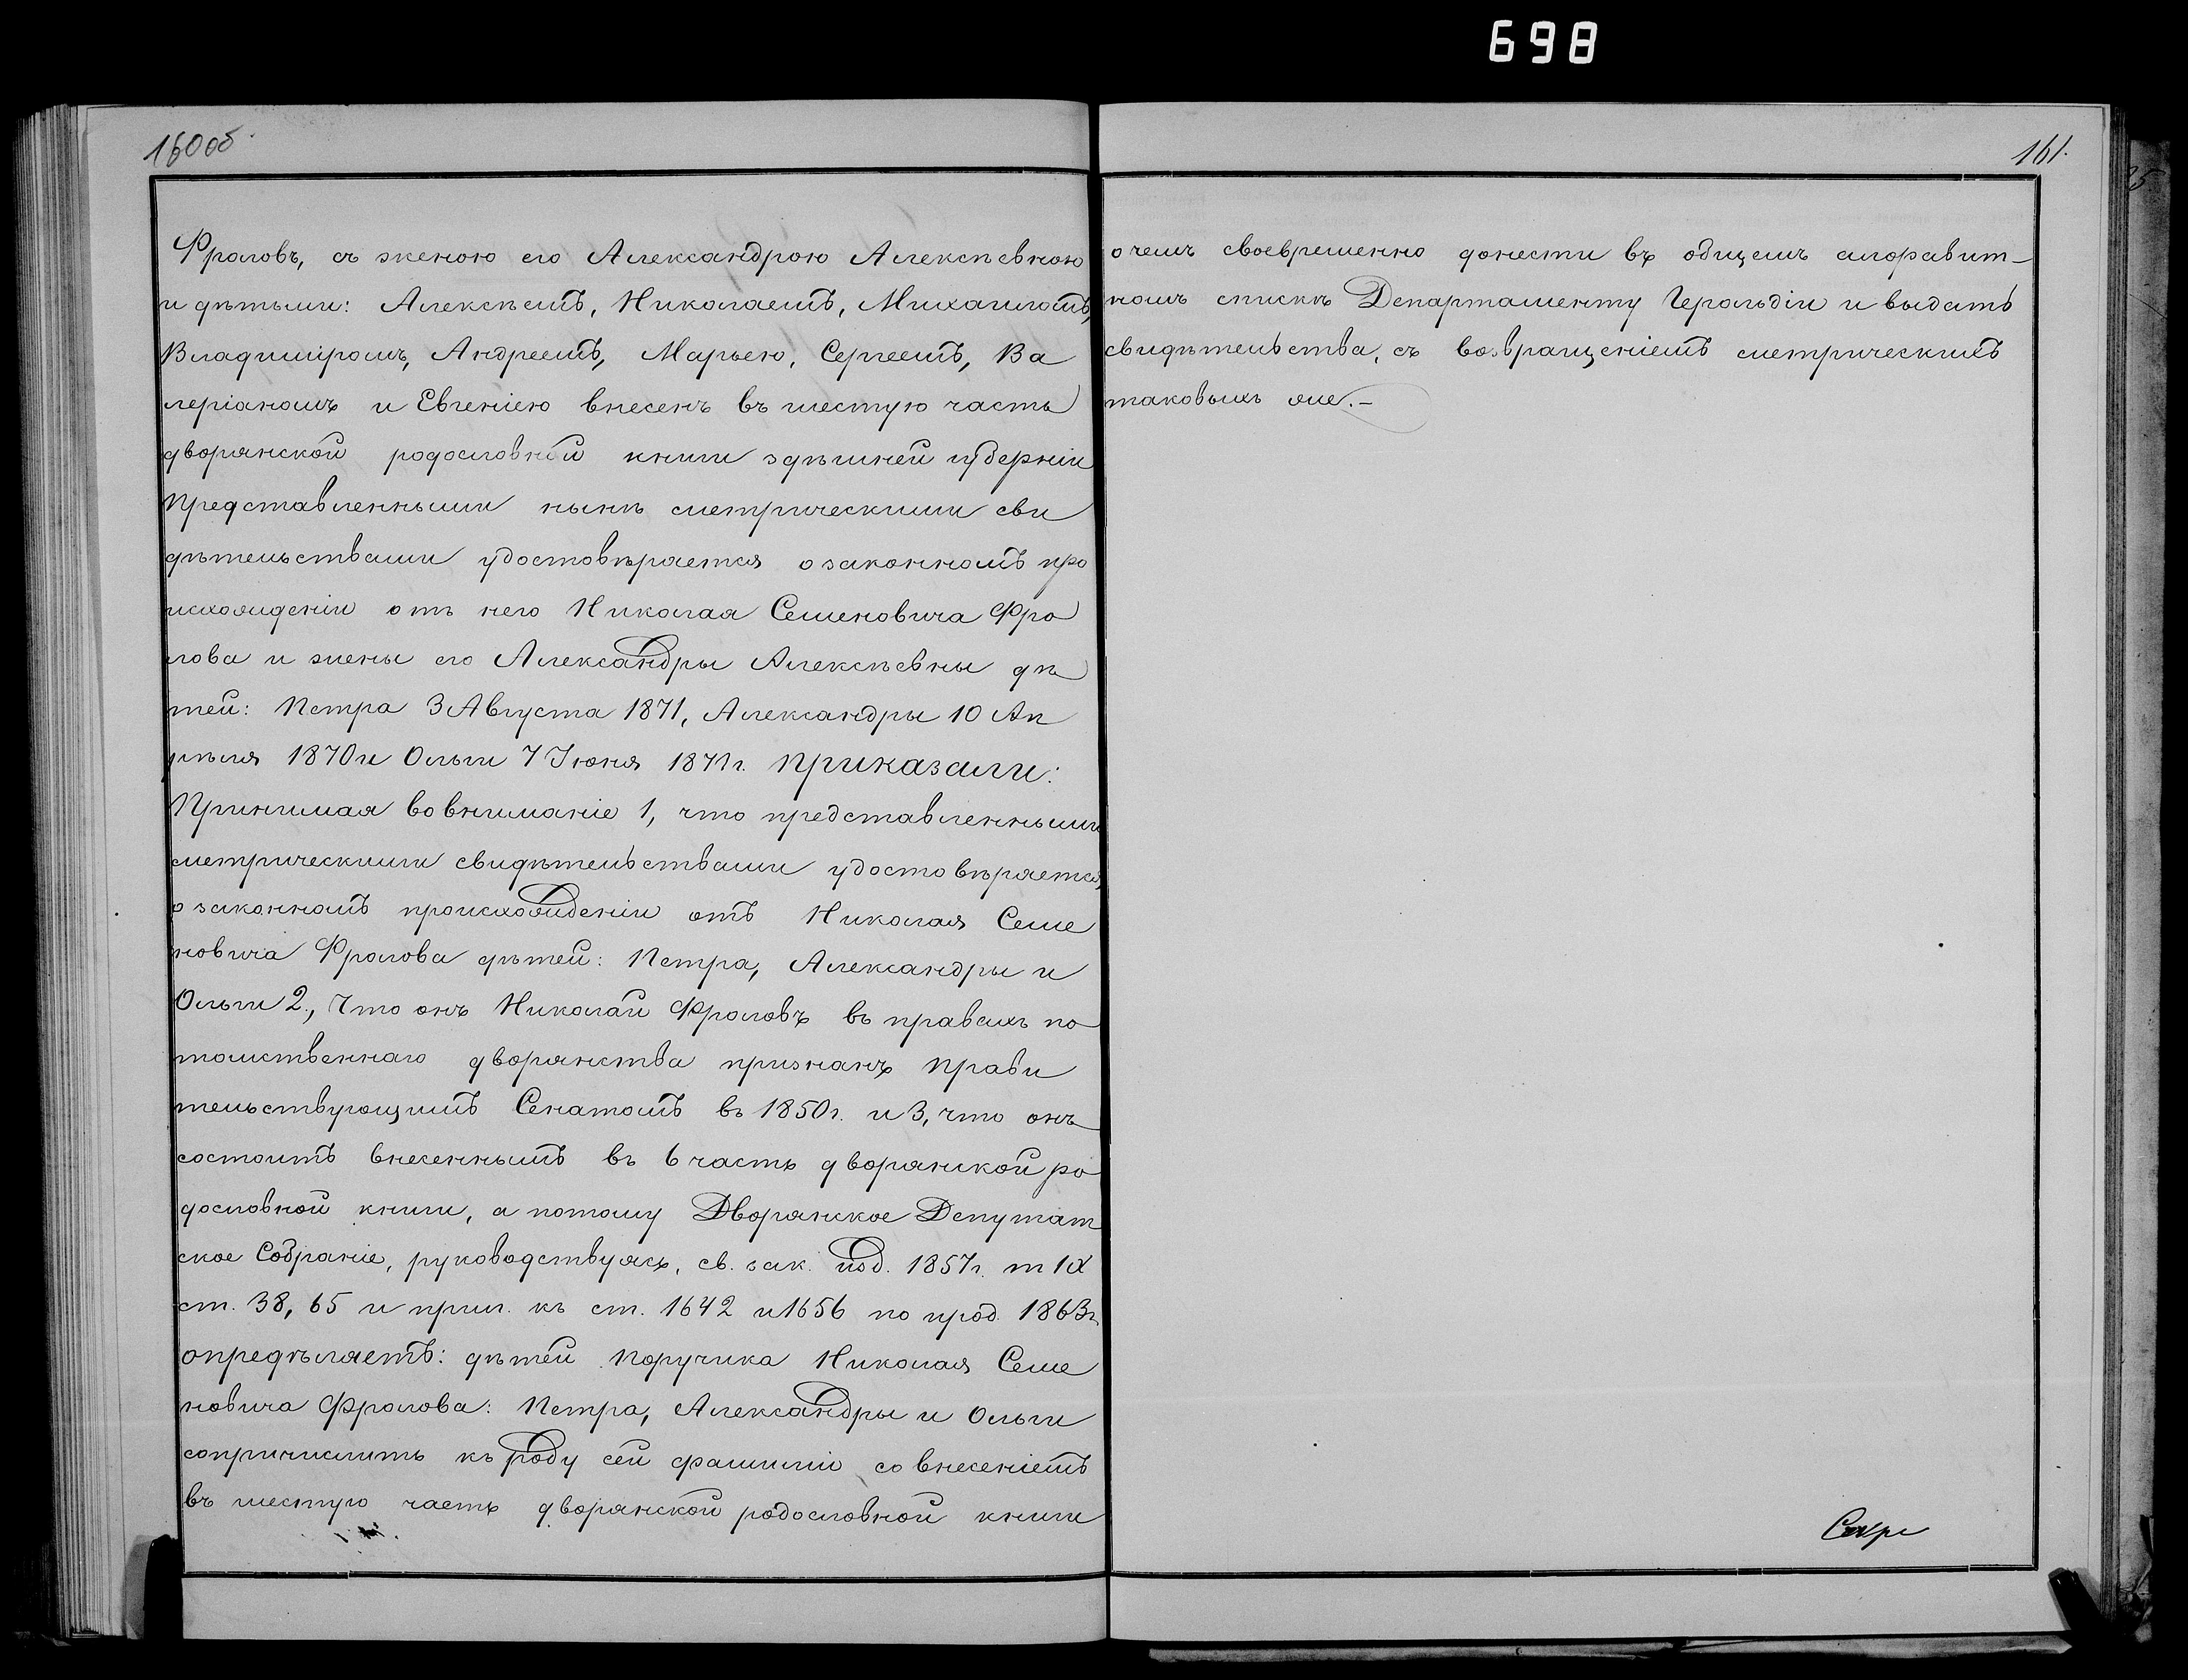 698
160об.
Фроловъ, съ женою его Александрою Алексѣевною
и дѣтьми: Алексѣемъ, Николаемъ, Михаиломъ,
Владиміромъ, Андреемъ, Марьею, Сергеемъ, Ва
леріаномъ и Евгеніею внесенъ въ шестую часть
дворянской родословной книги здѣшней губерніи
Представленными нынѣ метрическими сви
дѣтельствами удостовѣряется о законномъ про
исхожденіи отъ него Николая Семеновича Фро
лова и жены его Александры Алексѣевны дѣ
тей: Петра 3 Августа 1871, Александры 10 Ап
рѣля 1870 и Ольги 7 Іюня г. Приказали:
Принимая во вниманіе 1, что представленными
метрическими свидѣтельствами удостовѣряется
о законномъ происхожденіи отъ Николая Семе
новича Фролова дѣтей: Петра, Александры и
Ольги 2., Что онъ Николай Фроловъ въ правахъ по
томственнаго дворянства признанъ Прави
тельствующимъ Сенатомъ въ 1850 г. и 3, что онъ
состоитъ внесеннымъ въ 6 часть дворянской ро
дословной книги, а потому Дворянское Депутат
ское Собраніе, руководствуясь, св. зак. изд. 1857 г. т IX
ст. 38, 65 и прим. къ ст. 1642 и 1656 по прод. 1863 г.
опредѣляетъ: дѣтей Поручика Николая Семе
новича Фролова: Петра, Александры и Ольги
сопричислить къ роду сей фамиліи со внесеніемъ
въ шестую часть дворянской родословной книги
161.
о чемъ своевременно донести въ общемъ алфавит-
номъ спискѣ Департаменту Герольдіи и выдать
свидѣтельства, съ возвращеніемъ метрическихъ
таковыхъ же.-